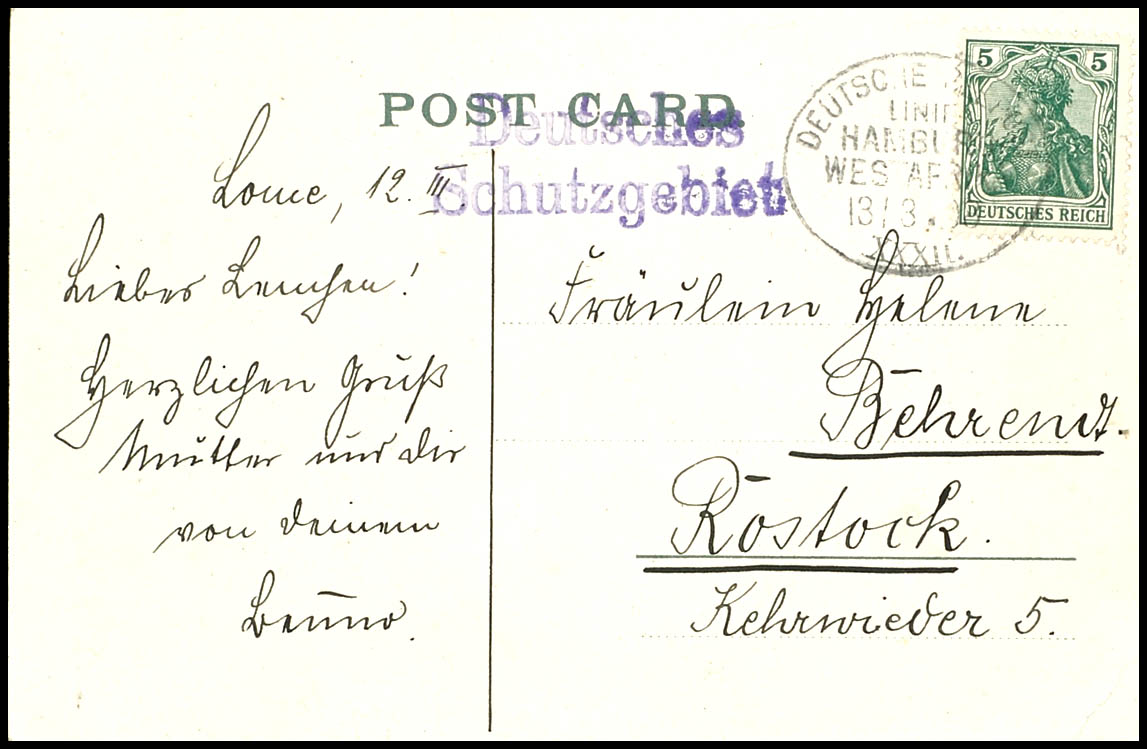 POST CARD
Deutsches
Schutzgebiet
DEUTSCHE
LINIE
HAMBU
WESTAFR
13/3
XXXII.
5 5
DEUTSCHES REICH
Lome, 12. III.
Liebes Lenchen!
Herzlichen Gruß
Mutter und dir
von deinem
Benno.
Fräulein Helene
Behrendt.
Rostock.
Kehrwieder 5.